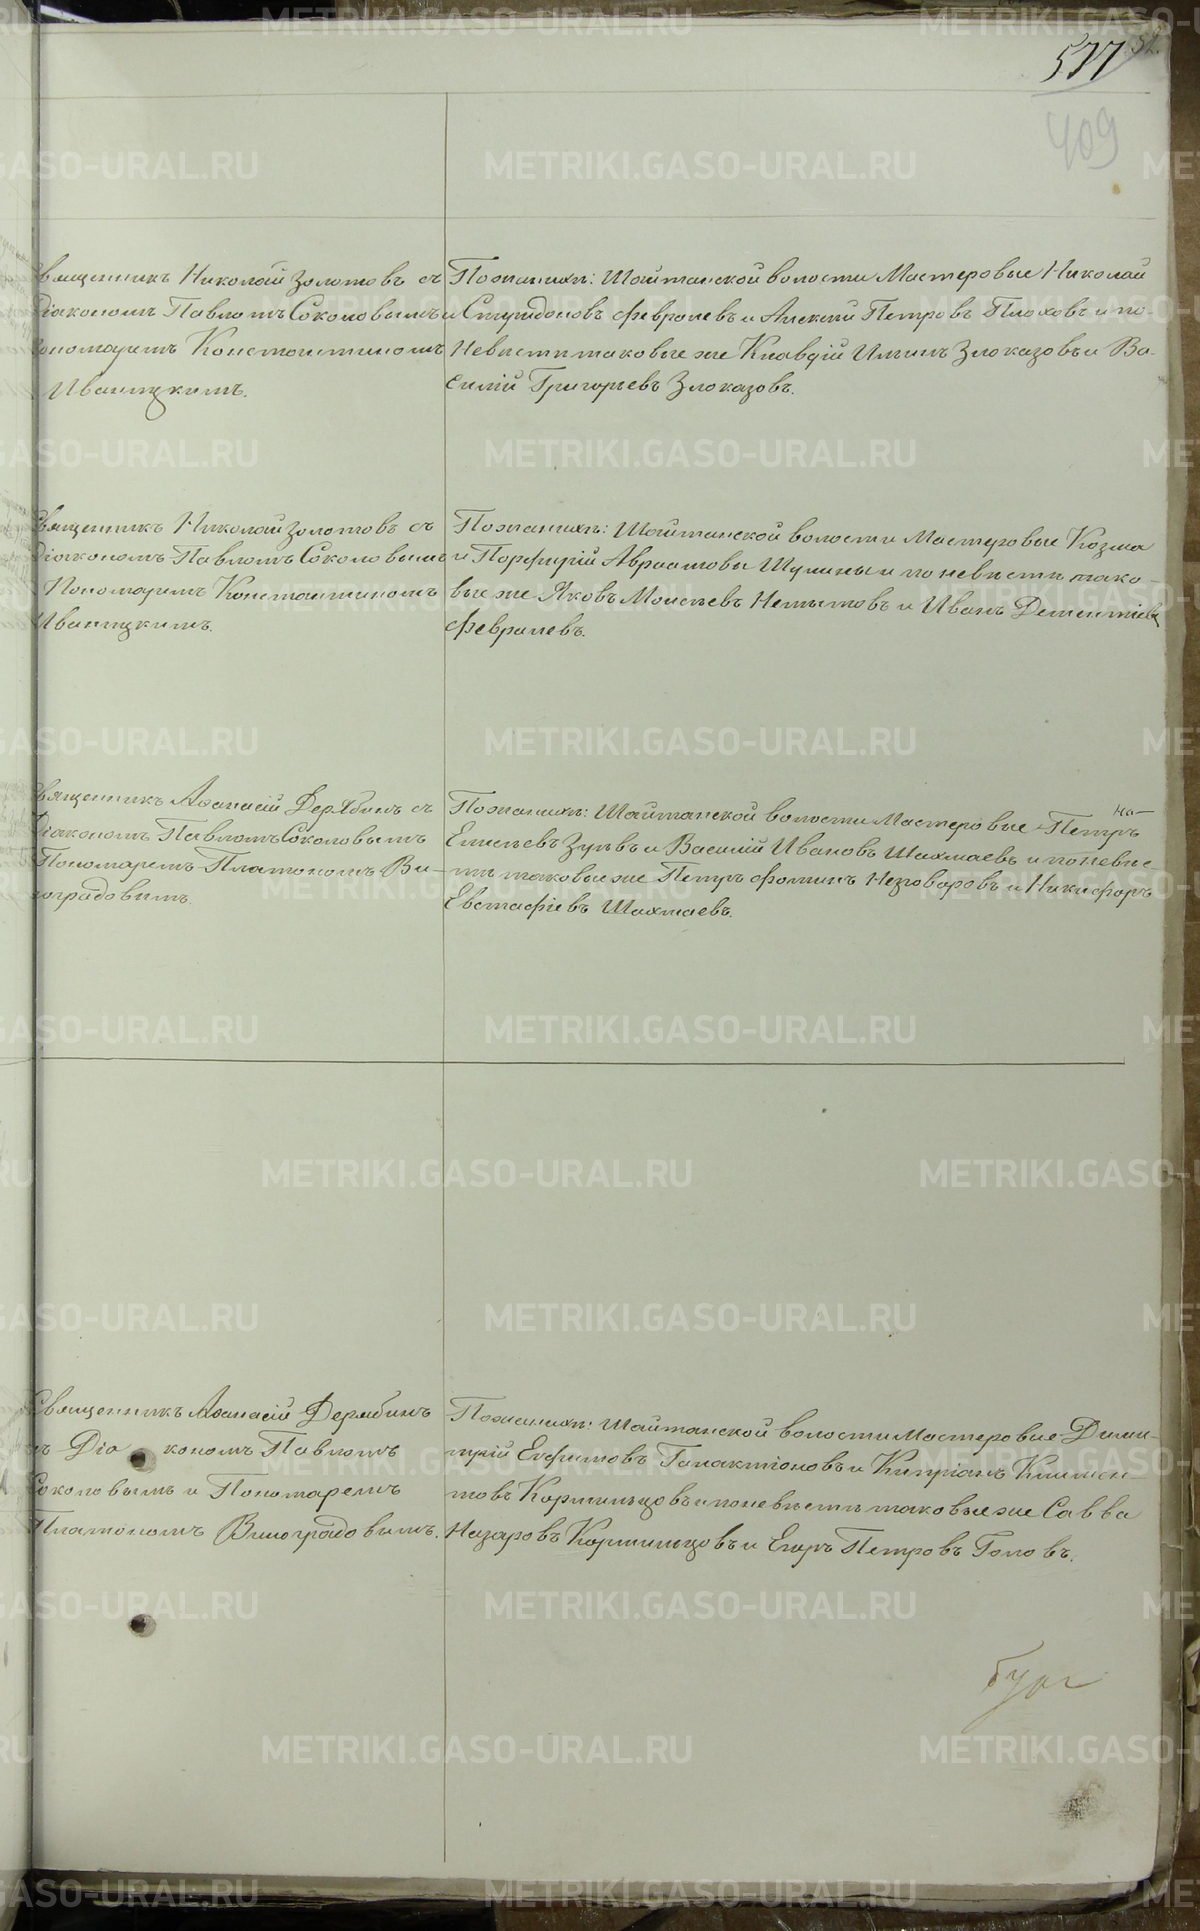 577
409
Священникъ Николай Золотовъ съ
Діакономъ Павломъ Соколовымъ и
Пономаремъ Константиномъ
Иваницкимъ.
По женихѣ: Шайтанской волости Мастеровые Николай
Спиридоновъ Февралевъ и Алексѣй Петровъ Плоховъ и по
невѣстѣ таковые же Клавдій Ильинъ Злоказовъ и Ва-
силій Григорьевъ Злоказовъ.
Священникъ Николай Золотовъ съ
Діакономъ Павломъ Соколовымъ
Пономаремъ Константиномъ
Иваницкимъ.
По женихѣ: Шайтанской волости Мастеровые Козма
и Порфирій Авраамовы Шулины и по невѣстѣ тако-
вые же Яковъ Моисеевъ Немытовъ и Иванъ Дементіевъ
Февралевъ.
Священникъ Аѳанасій Дерябинъ съ
Діакономъ Павломъ Соколовымъ
Пономаремъ Платономъ Ви-
ноградовымъ.
По женихѣ: Шайтанской волости Мастеровые Петръ
Елисеевъ Зуевъ и Василій Ивановъ Шахмаевъ и по невѣс-
тѣ таковые же Петръ Фоминъ Незговоровъ и Никифоръ
Евстафіевъ Шахмаевъ.
Священникъ Аѳанасій Дерябинъ
съ Діакономъ Павломъ
Соколовымъ и Пономаремъ
Платономъ Виноградовымъ.
По женихѣ: Шайтанской волости Мастеровые Дими-
трій Евфимовъ Галактіоновъ и Кипріанъ Климен-
товъ Кормильцовъ и по невѣстѣ таковые же Савва
Назаровъ Кормильцовъ и Егоръ Петровъ Головъ.
METRIKI.GASO-URAL.RU